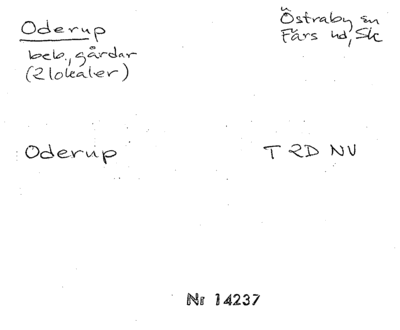 Oderup
beb., gårdar
(2 lokaler)
Östraby sn
Färs hd, Sk
Oderup
T 2D NV
Nr 14237